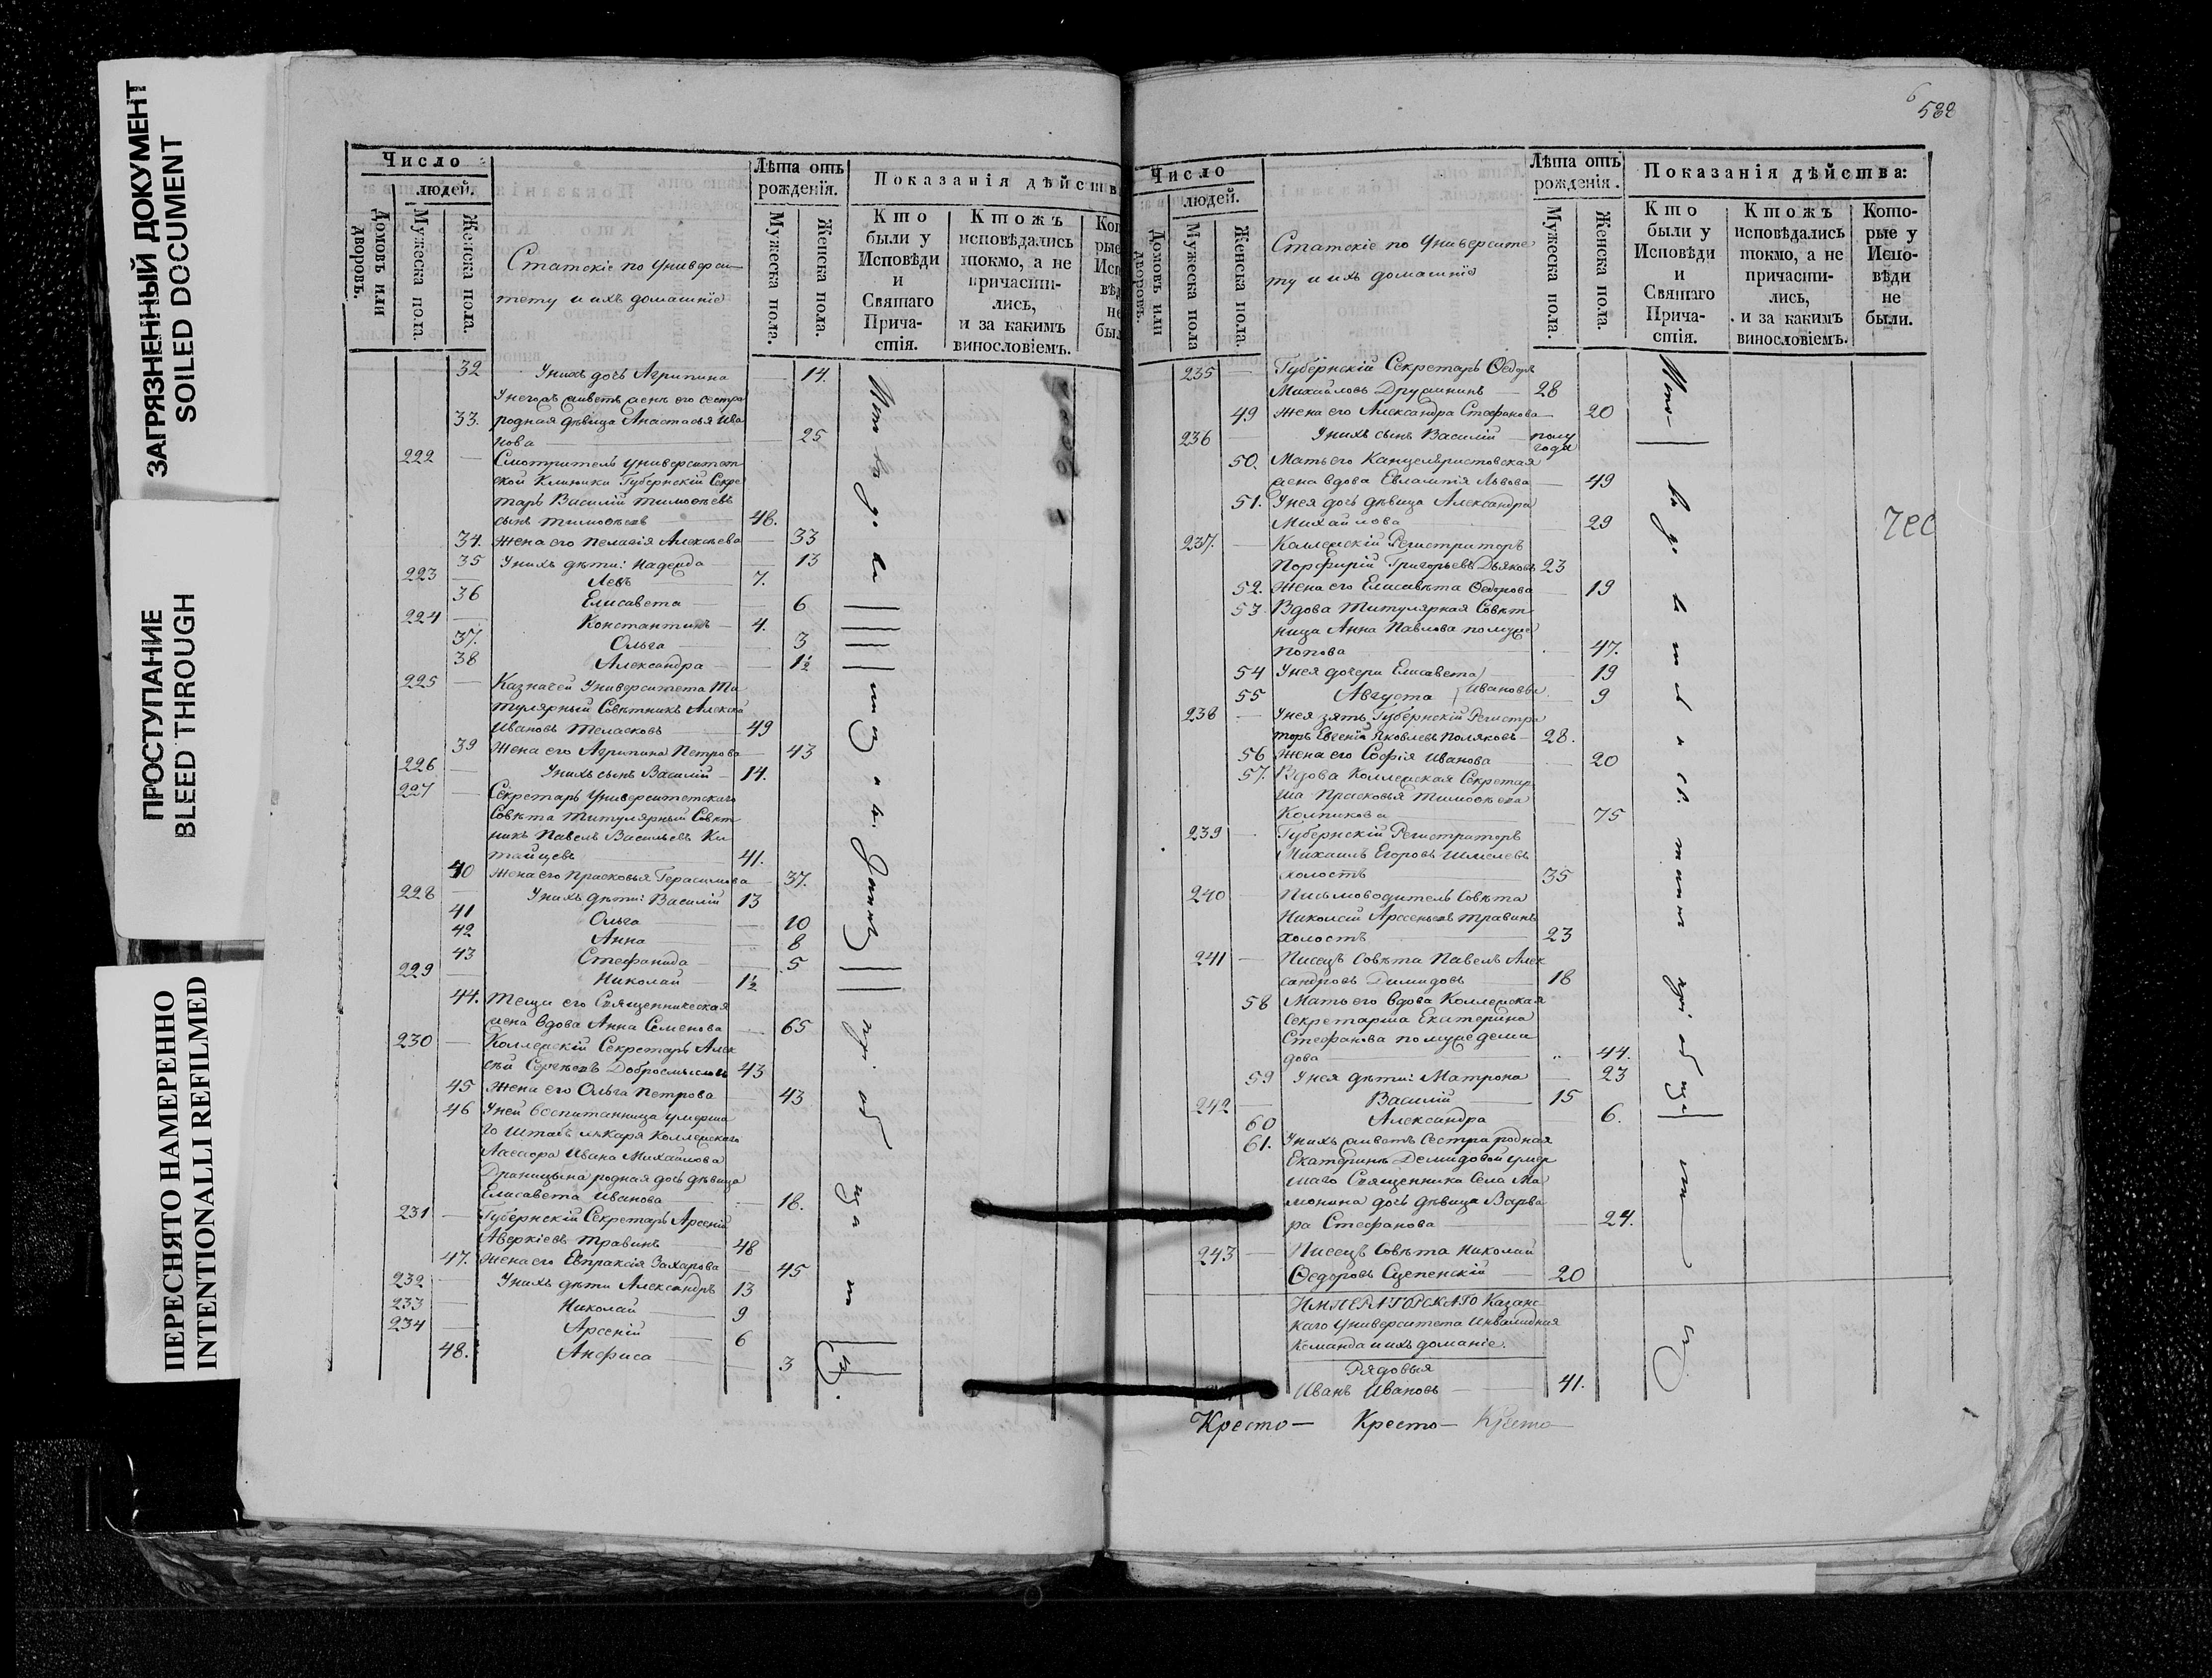 ЗАГРЯЗНЕННЫЙ ДОКУМЕНТ
SOILED DOCUMENT
ПРОСТУПАНИЕ
BLEED THROUGH
ПЕРЕСНЯТО НАМЕРЕННО
INTENTIONALLI REFILMED
Число
людей.
Домовъ или дворовъ.
Мужеска пола
Женска пола.
Статскіе по Универси-
тету и ихъ домашніе
Лѣта отъ
рожденія.
Мужеска пола.
Женска пола.
Показанія дѣйства
Кто
были у
Исповѣди
и
Святаго
Прича-
стія.
Ктожъ
исповѣдались
токмо, а не
причасти-
лись,
и за какимъ
винословіемъ.
32 Унихъ дочь Агрипина 14.
Унегоръ живетъ жены его сестра
33. родная дѣвица Анастасья Ива
нова 25
222 Смотритель университет
ской Клиники Губернскій Секре
тарь Василій Тимоѳеевъ
сынъ Тимоѳеевъ 46.
34. Жена его Пелагія Алексѣева 33
35 Унихъ дѣти: Надежда 13
223 Левъ 7.
36 Елисавета 6
224 Константинъ 4.
37. Ольга 3
38 Александра 1½
225 Казначей Университета Ти
тулярный Совѣтникъ Алексѣй
Ивановъ Теласковъ 49
39 Жена его Агрипина Петрова 43
226 Унихъ сынъ Василій 14.
227 Секретарь Университетскаго
Совѣта Титулярный Совѣт
никъ Павелъ Васильевъ Ки
тайцевъ 41.
40 Жена его Прасковья Герасимова 37.
228 Унихъ дѣти: Василій 13
41 Ольга 10
42 Анна 8
43 Стефанида 5
229 Николай 1½
44. Теща его Священническая
жена вдова Анна Семенова 65
230 Коллежскій Секретарь Алек
сѣй Сергѣевъ Добросмысловъ 43
45 Жена его Ольга Петрова 43
46 Уней воспитанница умерша
го Штабъ лѣкаря Коллежскаго
Ассесора Ивана Михайлова
Драницына родная дочь дѣвица
Елисавета Иванова 18.
231 Губернскій Секретарь Арсеній
Аверкіевъ Травинъ 48
47. Жена его Евпраксія Захарова 45
232 Унихъ дѣти Александръ 13
233 Николай 9
234 Арсеній 6
48. Анфиса 3
6
588
Число
людей.
Домовъ или дворовъ.
Мужеска пола
Женска пола.
Статскіе по Университе
ту и ихъ домашніе
Лѣта отъ
рожденія.
Мужеска пола.
Женска пола.
Показанія дѣйства:
Кто
были у
Исповѣди
и
Святаго
Прича-
стія.
Ктожъ
исповѣдались
токмо, а не
причасти-
лись,
и за какимъ
винословіемъ.
Кото-
рые у
Испо-
вѣди
не
были.
235 Губернскій Секретарь Ѳедоръ
Михайловъ Дружининъ 28
49 Жена его Александра Стефанова 20
236 Унихъ сынъ Василій полу
года
50. Мать его Канцеляристовская
жена вдова Евлампія Львова 49
51. Унея дочь дѣвица Александра
Михайлова 29
237. Коллежскій Регистраторъ
Порфирій Григорьевъ Дьяковъ 23
52. Жена его Елисавѣта Ѳедорова 19
53 Вдова Титулярная Совѣт
ница Анна Павлова по мужѣ
Попова 47.
54 Унея дочери Елисавета 19
55 Августа Ивановы 9
238 Унея зять Губернскій Регистра
торъ Евгеній Яковлевъ Поляковъ 28.
56 Жена его Софія Иванова 20
57. Вдова Коллежская Секретар
ша Прасковья Тимоѳеева
Колпикова 75
239 Губернскій Регистраторъ
Михаилъ Егоровъ Шмелевъ
холостъ 35
240 Письмоводитель Совѣта
Николай Арсеньевъ Травинъ
холостъ 23
241 Писецъ Совѣта Павелъ Алек
сандровъ Димидовъ 18
58 Мать его вдова Коллежская
Секретарша Екатерина
Стефанова по мужѣ деми
дова 44.
59 Унея дѣти: Матрона 23
242 Василій 15
60 Александра 6.
61. Унихъ живетъ Сестра родная
Екатерины Демидовой умер
шаго Священника Села Ма
монина дочь дѣвица Варва
ра Стефанова 24.
243 Писецъ Совѣта Николай
Ѳедоровъ Сцепенскій 20
ИМПЕРАТОРСКАГО Казанс
каго Университета Инвалидная
Команда и ихъ доманіе.
Рядовыя
Иванъ Ивановъ 41.
Кресто- Кресто- Кресто